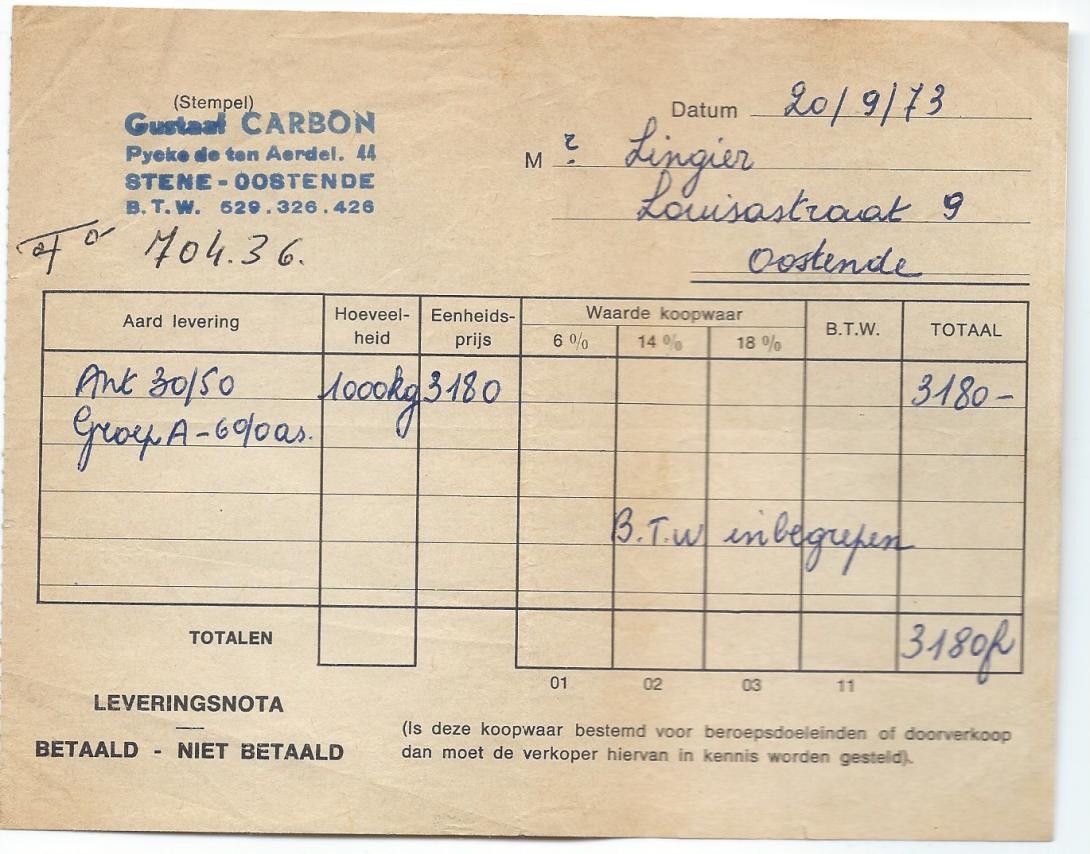 (Stempel)
Gustaaf CARBON
Pycke de ten Aerdel. 44
STENE - OOSTENDE
B.T.W. 529.326.426
704.36.
Datum 20/9/73
M r. Lingier
Louisastraat 9
Oostende
Aard levering Hoeveel-heid Eenheids-prijs Waarde koopwaar B.T.W. TOTAAL
6 % 14 % 18 %
Ant 30/50 1000kg 3180 3180 -
Groep A - 6% as.
B.T.W inbegrepen
TOTALEN 3180 fr
01 02 03 11
LEVERINGSNOTA
BETAALD - NIET BETAALD
(Is deze koopwaar bestemd voor beroepsdoeleinden of doorverkoop
dan moet de verkoper hiervan in kennis worden gesteld).